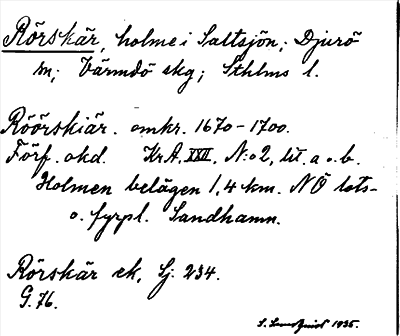 Rörskär, holme i Saltsjön; Djurö
sn; Värmdö skg; Sthlms l.
Röörskiär. omkr. 1670-1700.
Förf. okd. KrA. XXII, N:o 2, lit. a o. b.
Holmen belägen 1,4 km. NÖ lots-
o. fyrpl. Sandhamn.
Rörskär ek, Sj. 234.
G. 76.
S. 1935.